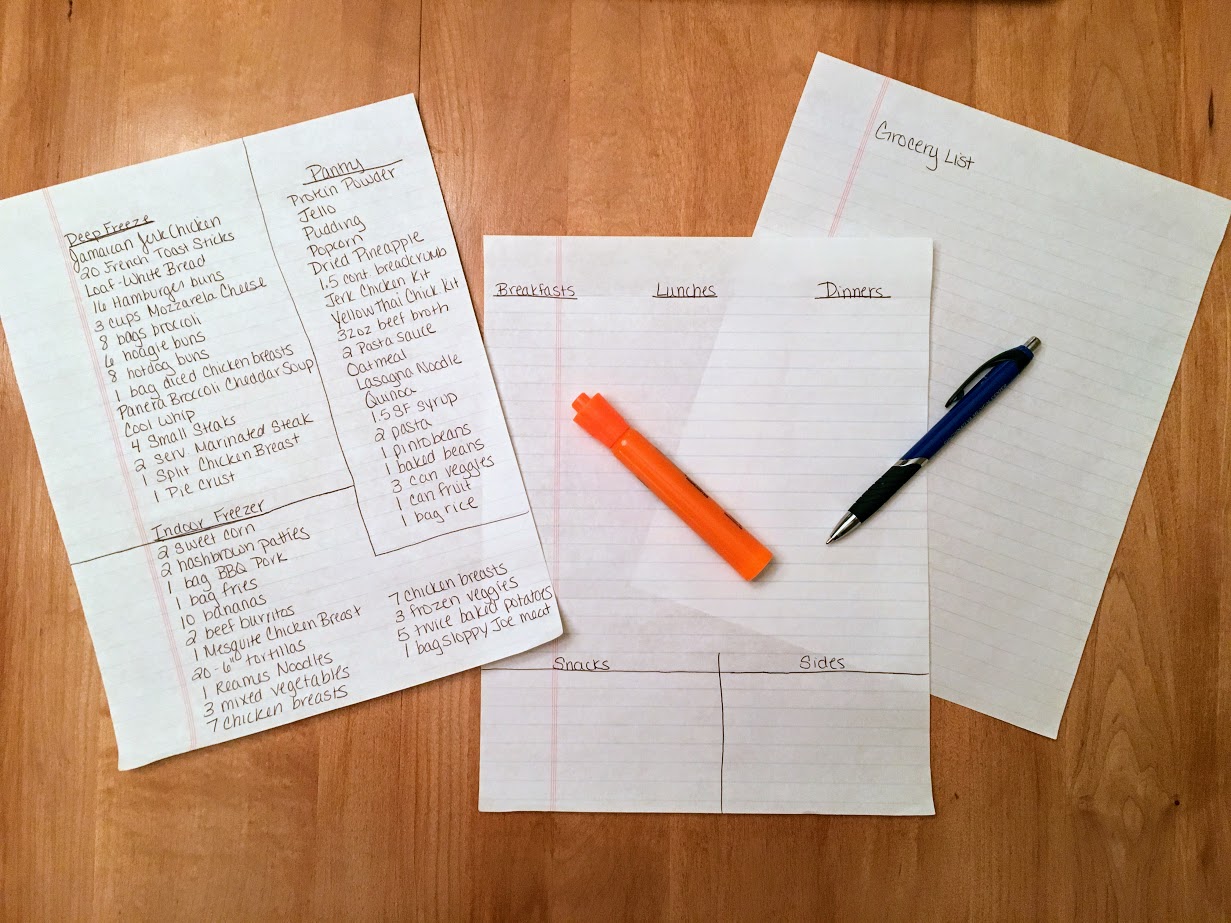 Deep Freeze
Jamaican Jerk Chicken
20 French Toast Sticks
Loaf-White Bread
16 Hamburger buns
3 cups Mozzarela Cheese
8 bags broccoli
6 hoagie buns
8 hotdog buns
1 bag diced Chicken breasts
Panera Broccoli Cheddar Soup
Cool Whip
4 Small Steaks
2 serv Marinated Steak
1 Split Chicken Breast
1 Pie Crust
Pantry
Protein Powder
Jello
Pudding
Popcorn
Dried Pineapple
1.5 cont breadcrumb
Jerk Chicken Kit
Yellow Thai Chick Kit
32oz beef broth
2 Pasta sauce
Oatmeal
Lasagna Noodle
Quinoa
1.5 SF Syrup
2 pasta
1 pinto beans
1 baked beans
3 can veggies
1 can fruit
1 bag rice
Indoor Freezer
2 sweet corn
2 hashbrown patties
1 bag BBQ Pork
1 bag fries
10 bananas
2 beef burritos
1 Mesquite Chicken Breast
20 - 6" tortillas
1 Reames Noodles
3 mixed vegetables
7 Chicken breasts
7 chicken breasts
3 frozen veggies
5 twice baked potatoes
1 bag Sloppy Joe meat
Breakfasts Lunches Dinners
Snacks Sides
Grocery List